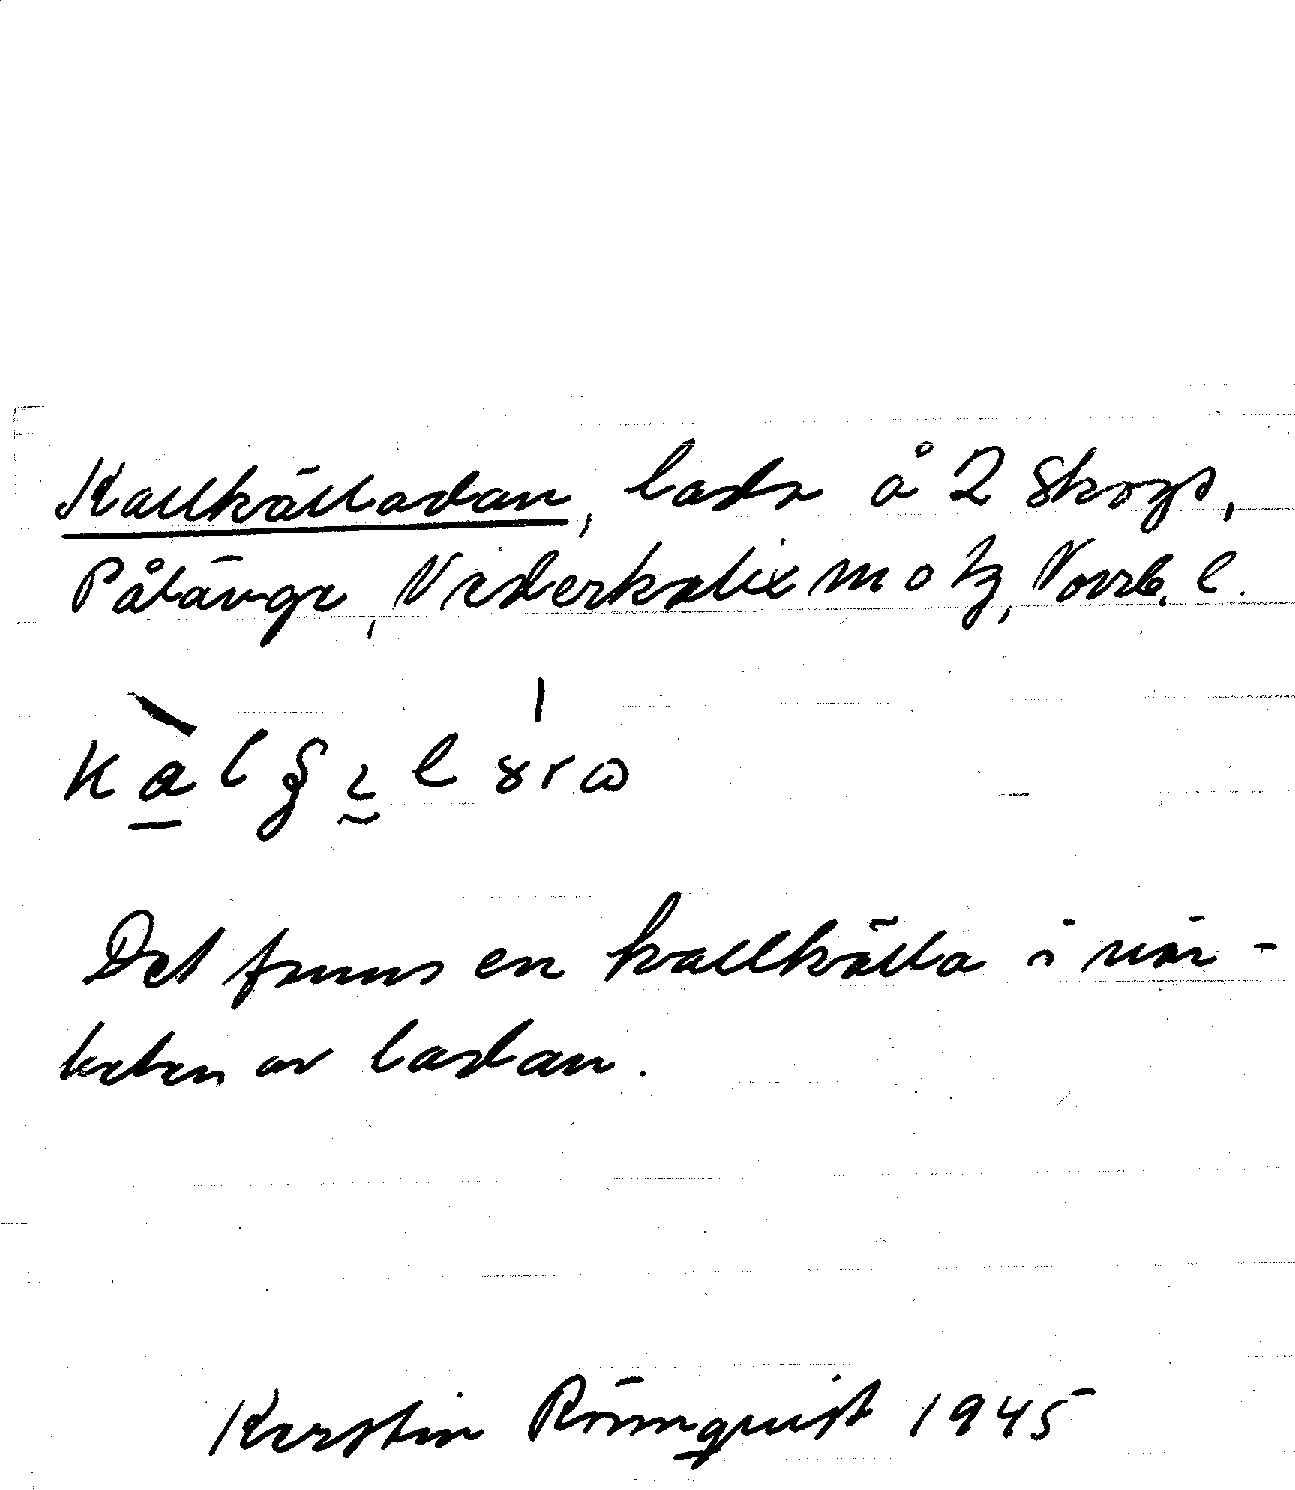 Kallkälladan, lada å 2 Skogs,
Pålänge, Nederkalix
Norrb. l.
Det finns en kallkälla i när-
heten av ladan.
Kerstin Rönnquist 1945